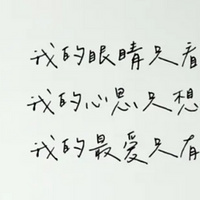 我的眼睛只看
我的心思只想
我的最爱只有